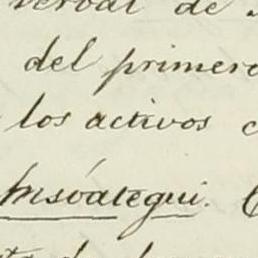 verbal de
del primero
los activos c
Ansóategui.